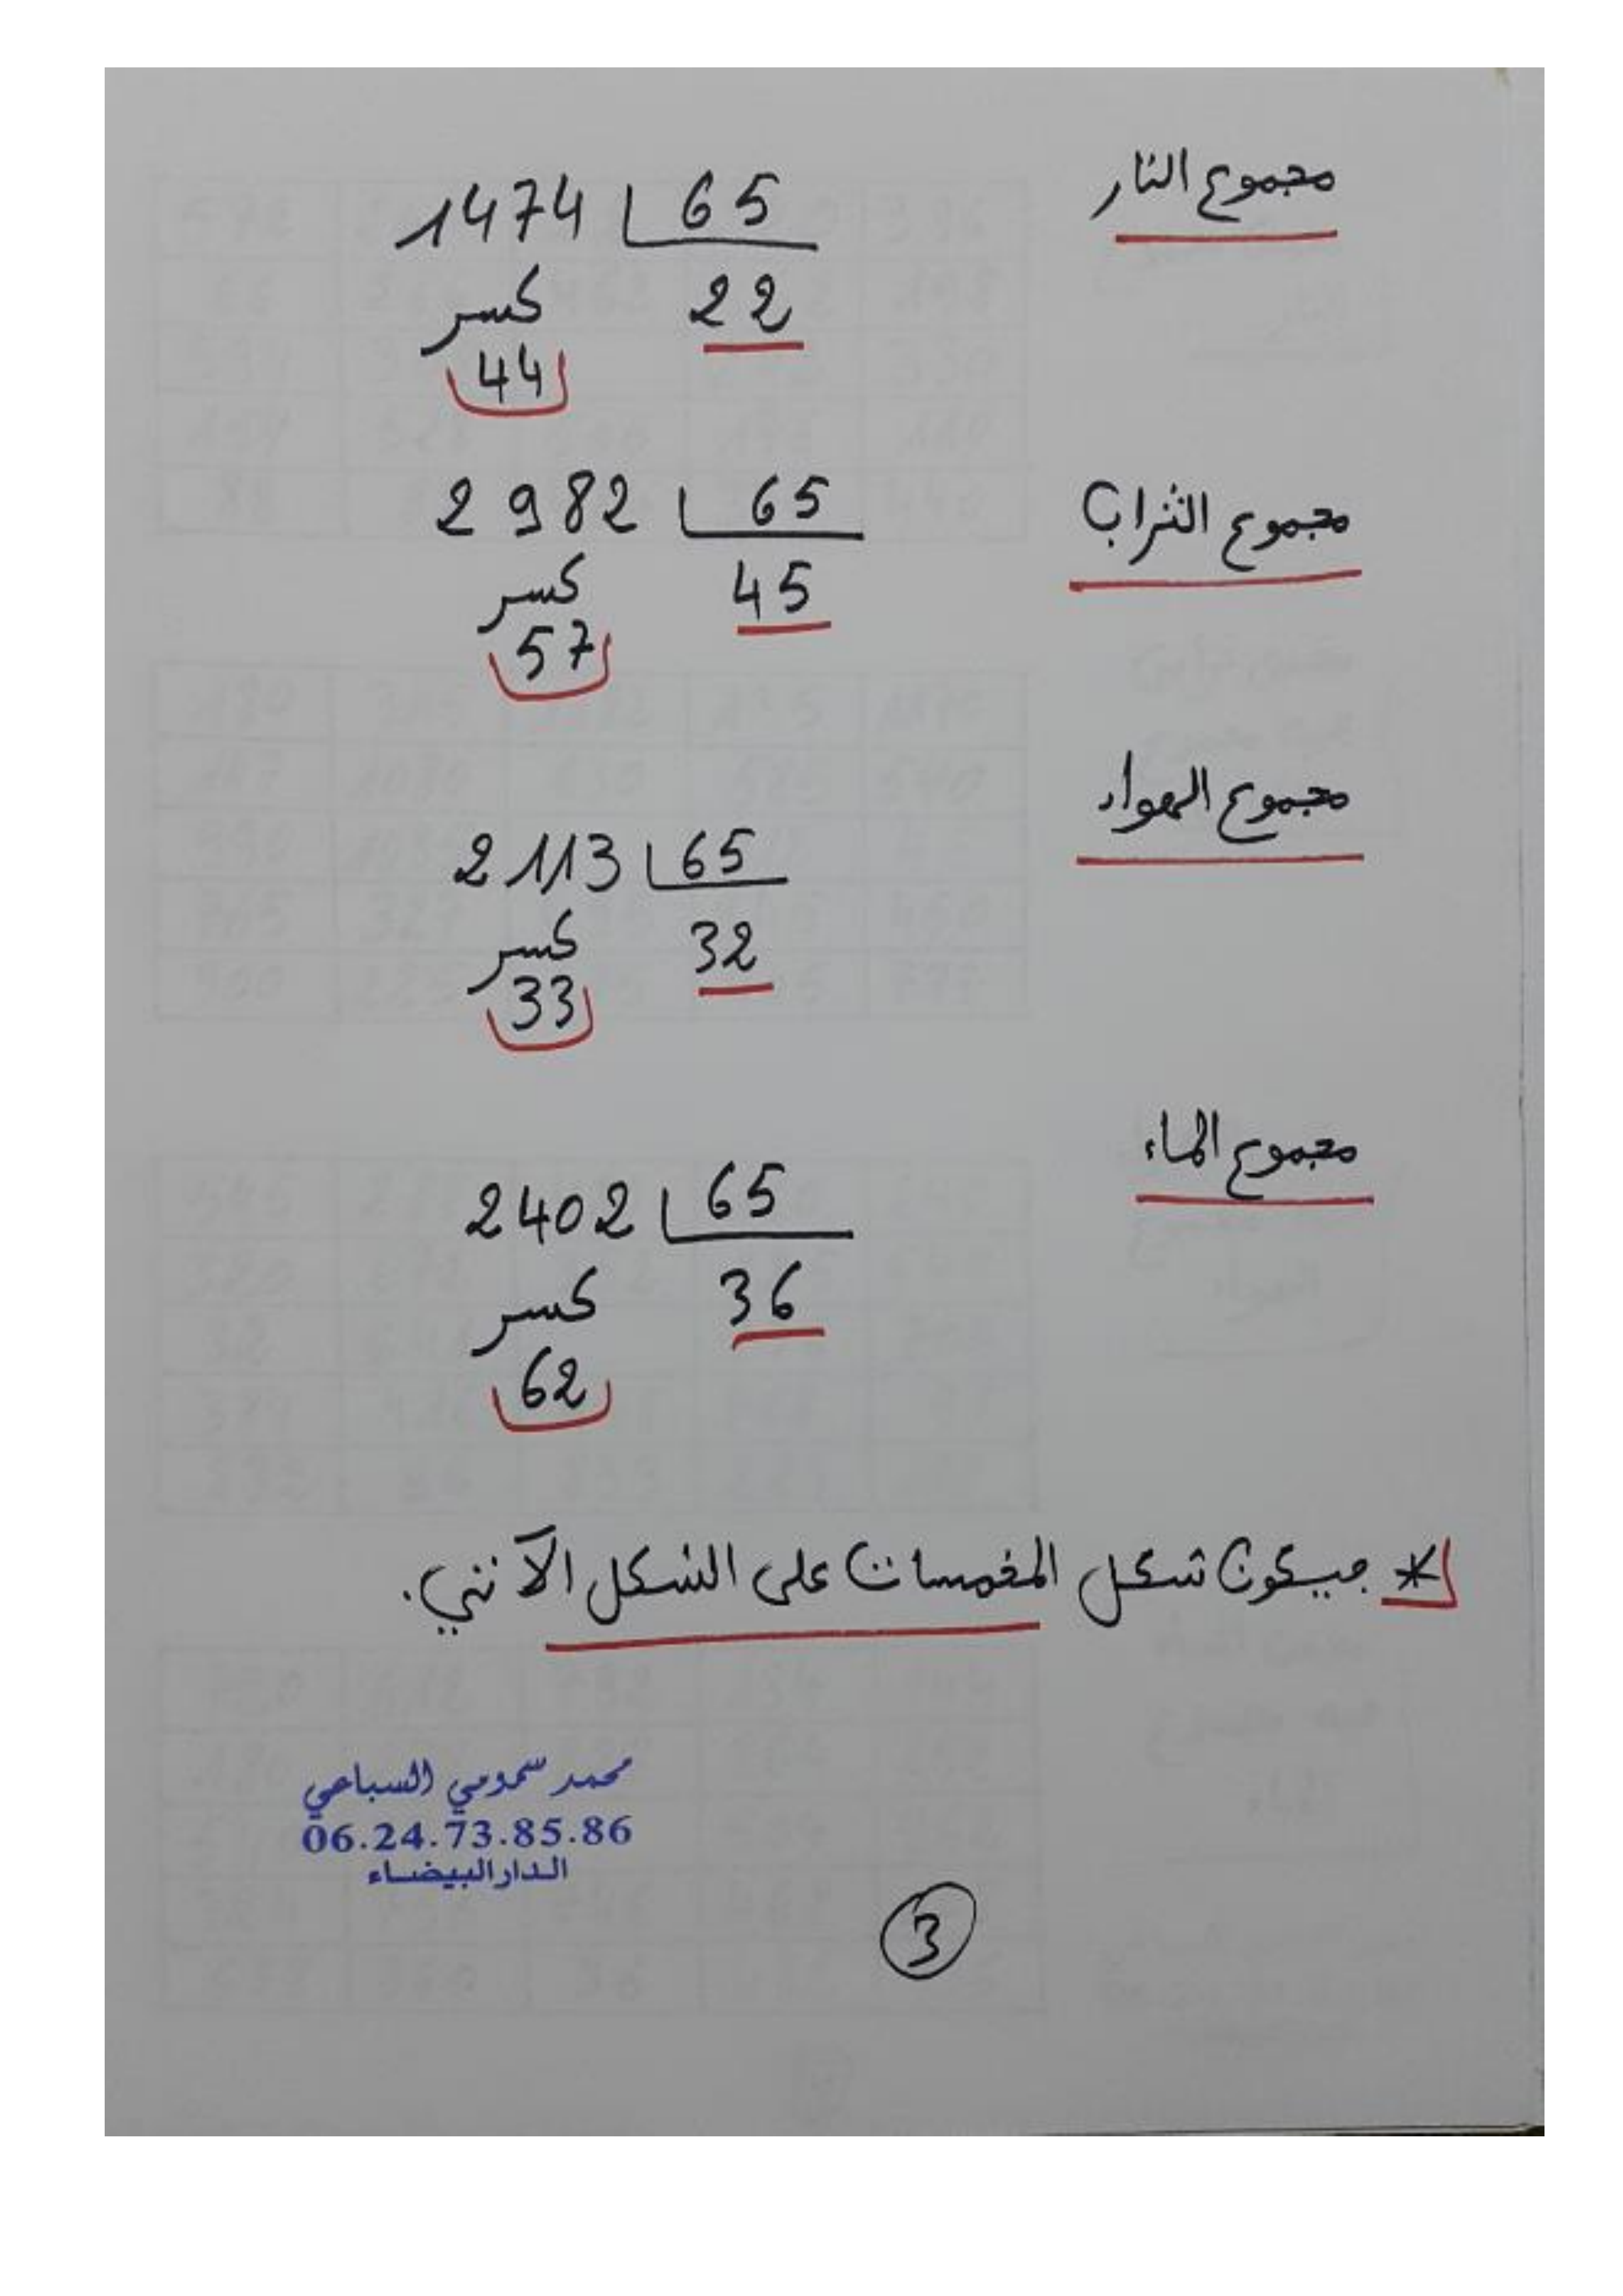 مجموع النار
1474 65
كسر 22
44
مجموع التراب
2982 65
كسر 45
57
مجموع الهواء
2113 65
كسر 32
33
مجموع الماء
2402 65
كسر 36
62
* فيكون شكل المخمسات على الشكل الآتي.
محمد سمومي السباعي
06.24.73.85.86
الدار البيضاء
3